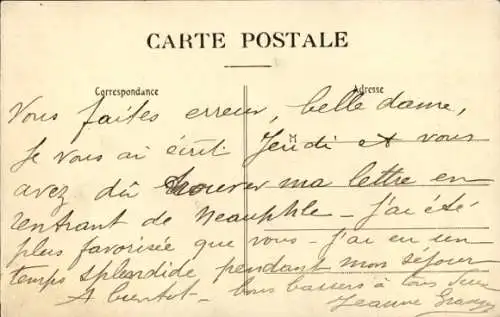 CARTE POSTALE
Correspondance
Adresse
M
Vous faites erreur, belle dame,
Je vous ai écrit Jeudi et vous
avez dû trouver ma lettre en
rentrant de Neauphle - j'ai été
plus favorisée que vous - j'ai eu un
temps splendide pendant mon séjour
A bientôt - bons baisers à tous
Jeanne